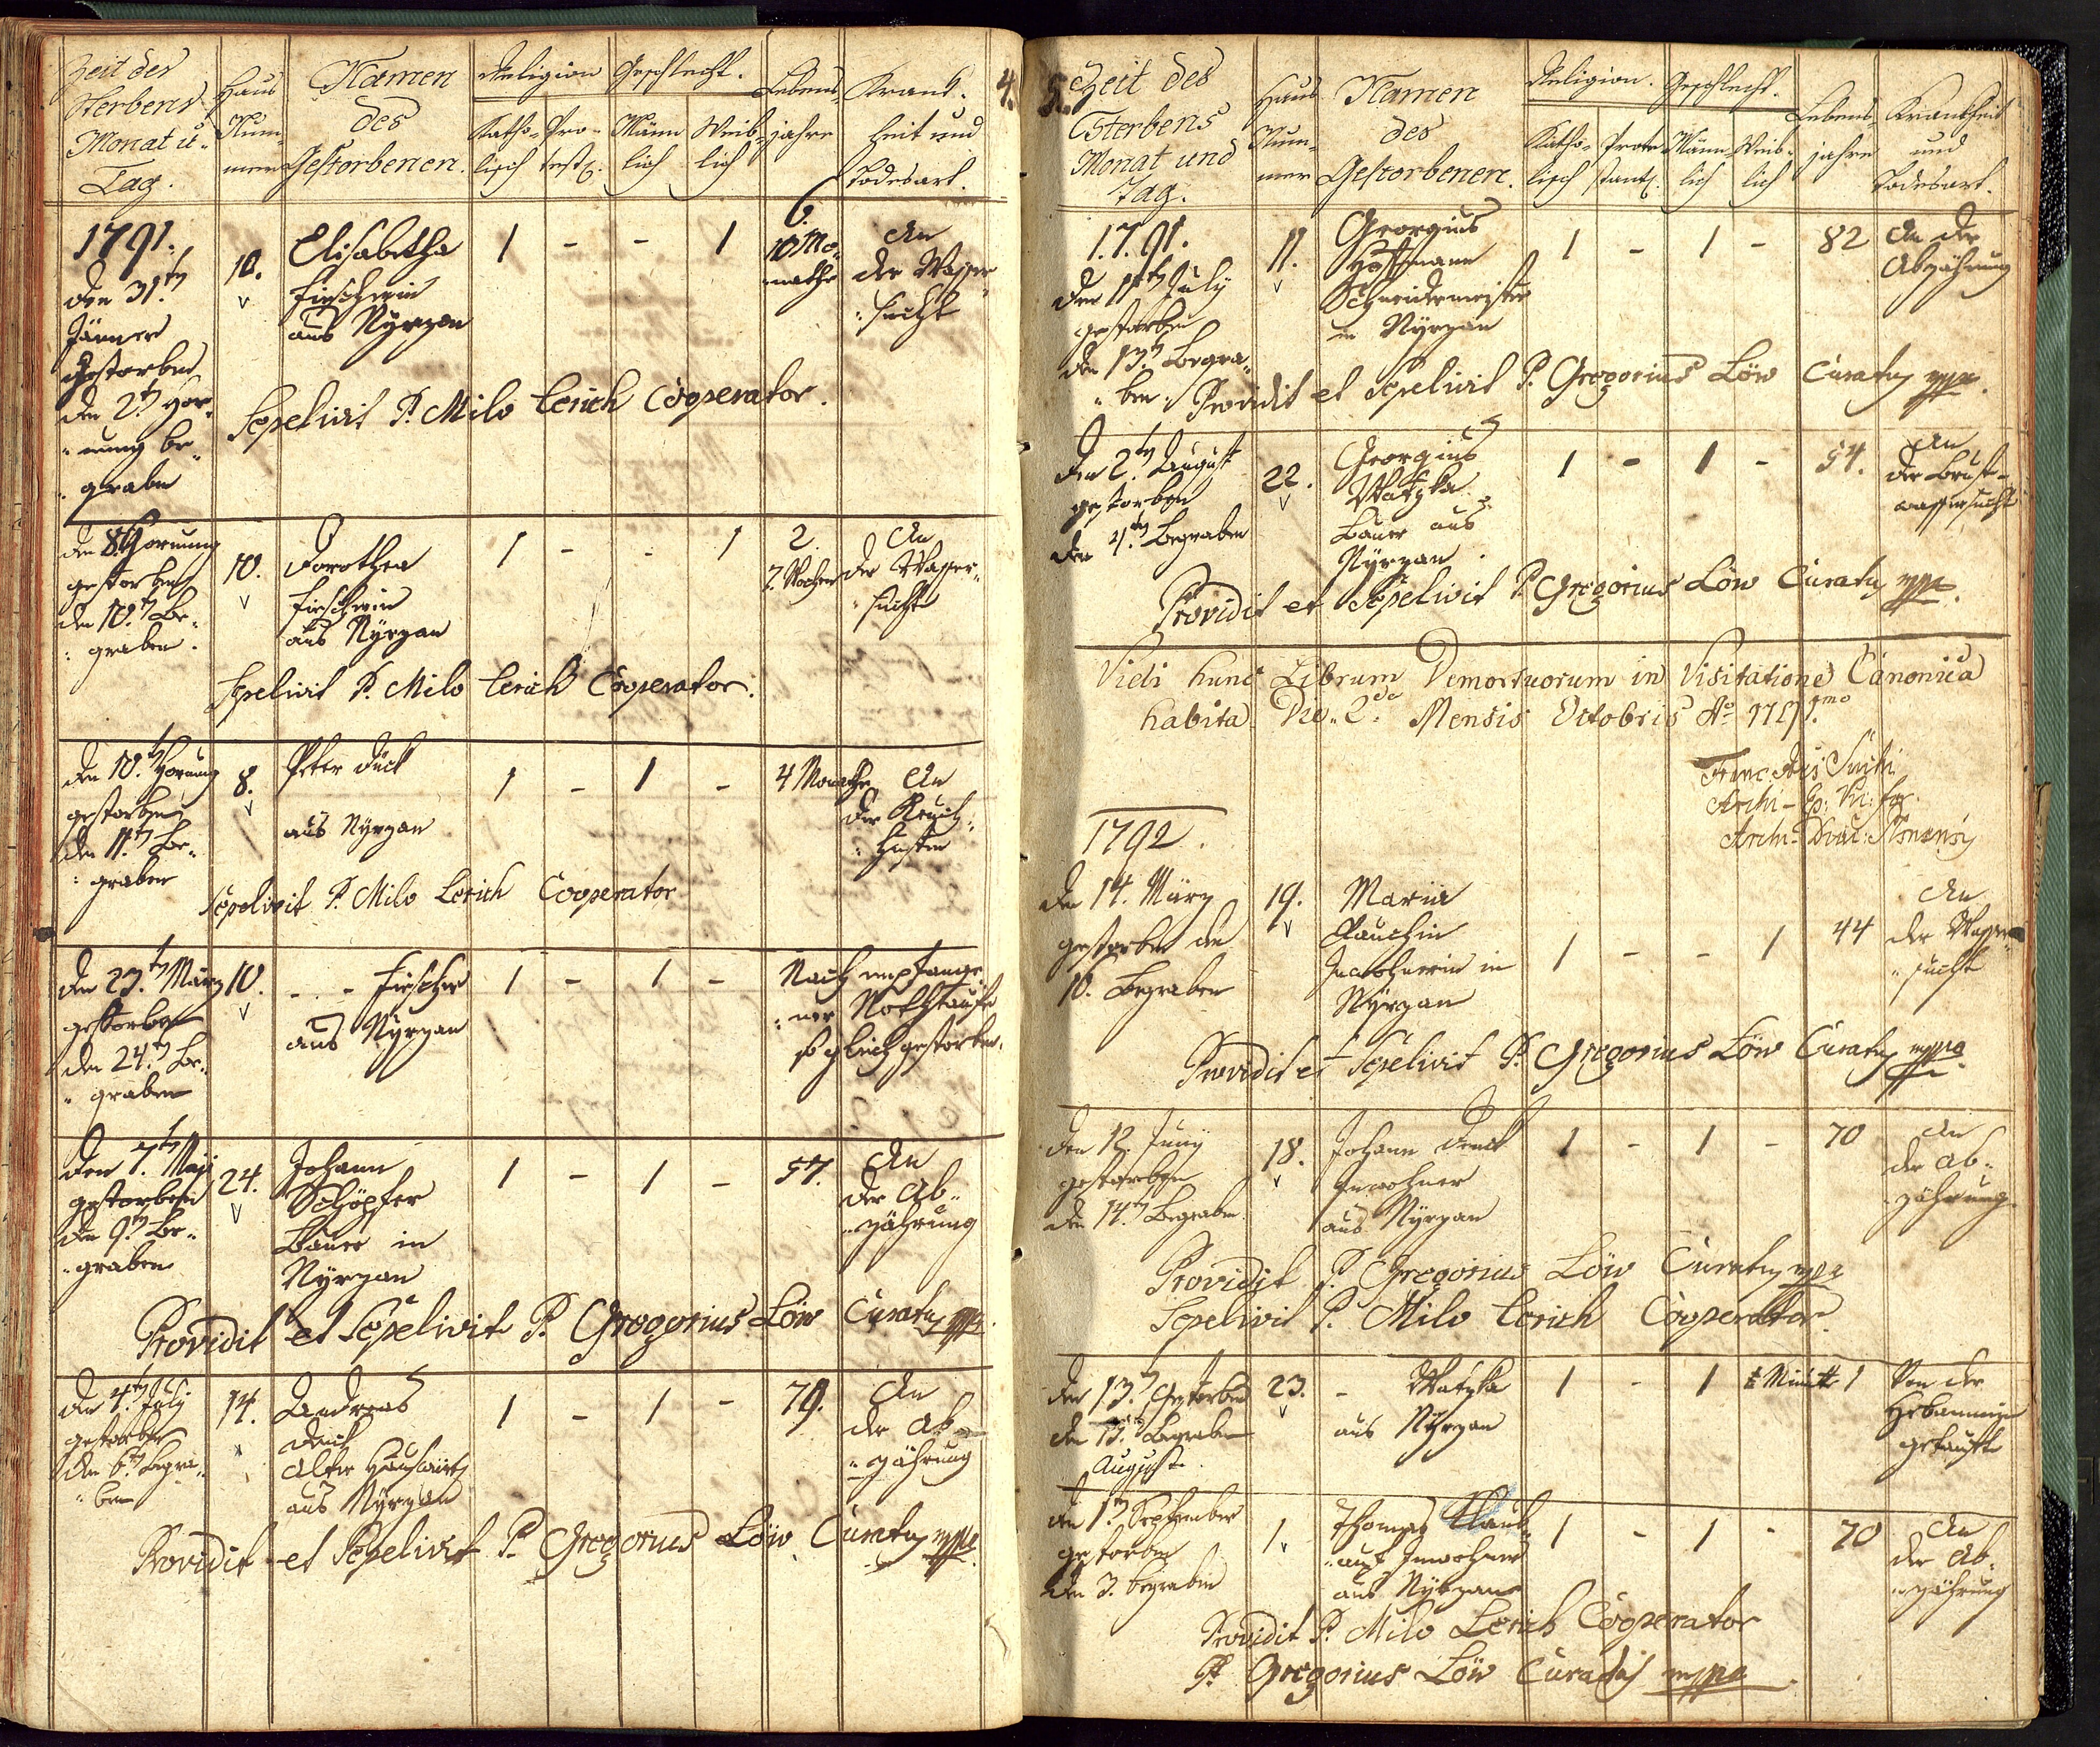 4.
Zeit der Sterbens Monat u. Tag.
Haus Nummer
Namen des Gestorbenen.
Religion
Katholisch
Protest.
Geschlecht.
Männlich
Weiblich
Lebensjahre
Krankheit und Todesart.
1791.
den 31.ten
Jänner
Gestorben
den 2.t Hor-
nung be-
graben
10.
Elisabetha
Fischerin
aus Nyrzan
1 - - 1
6.
10 Mo-
nathe
An
der Wasser-
sucht
Sepelivit P. Milo Lerich Cooperator.
den 8. Hornung
gestorben
den 10.t Be-
graben.
10.
Dorothea
Fischerin
aus Nyrzan
1 - - 1
2.
7. Wochen
An
der Wasser-
sucht
Sepelivit P. Milo Lerich Cooperator.
den 10.t Hornung
gestorben
den 11.t Be-
graben
8.
Peter
aus Nyrzan
1 - 1 -
4 Monathe
An
der Keuch-
husten
Sepelivit P. Milo Lerich Cooperator
den 23.t März
gestorben
den 24.t Be-
graben
10.
- - Fischer
aus Nyrzan
1 - 1 -
Nach empfange-
ner Nothtaufe
so gleich gestorben.
den 7.ten Maji
gestorben
den 9.t Be-
graben
24.
Johann
Schöpfer
Bauer in
Nyrzan
1 - 1 -
57.
An
der Ab-
zöhrung
Providit et Sepelivit P. Gregorius Löw Curatus mppa
den 4.t July
gestorben
den 6.t Begra-
ben
14.
Andreas
alter
aus Nyrzan
1 - 1 -
79.
An
der Ab-
zöhrung
Providit et Sepelivit P. Gregorius Löw Curatus mppa
5.
Zeit des Sterbens Monat und Tag.
Haus Nummer
Namen des Gestorbenen.
Religion.
Katholisch
Protestant.
Geschlecht.
Männlich
Weiblich
Lebensjahre
Krankheit und Todesart.
1791.
den 11.t July
gestorben
den 13.t Begra-
ben
11.
Georgius
Hoffmann
Schneidermeister
in Nyrzan
1 - 1 -
82
An der
Abzöhrung
Providit et Sepelivit P. Gregorius Löw Curatus mppa.
den 2.ten August
gestorben
den 4.ten Begraben
22.
Georgius
Watzka
Bauer aus
Nyrzan.
1 - 1 -
54.
An
der Brust-
wassersucht
Providit et Sepelivit P. Gregorius Löw Curatus mppa.
Vidi hunc Librum Demortuorum in Visitatione Canonica
habita Die 2da Mensis Octobris Ao 1791mo.
1792.
den 14. März
gestorben den
16. Begraben
19.
Maria
Inwohnerin in
Nyrzan
1 - - 1
44
An
der Wasser-
sucht
Providit et Sepelivit P. Gregorius Löw Curatus mppa.
den 12. Juny
gestorben
den 14.t Begraben
18.
Johann
Inwohner
aus Nyrzan
1 - 1 -
70
An
der Ab-
zöhrung
Providit P. Gregorius Löw Curatus mppa
Sepelivit P. Milo Lerich Cooperator.
den 13.t Gestorben
den 15.t Begraben
August.
23.
- Watzka
aus Nyrzan
1 - 1
Von der
Hebammin
getauft
den 1.t September
gestorben
den 3. begraben
1.
Thomas
Inwohner
aus Nyrzan
1 - 1 -
70
An
der Ab-
zöhrung
Providit P. Milo Lerich Cooperator
P. Gregorius Löw Curatus mppa